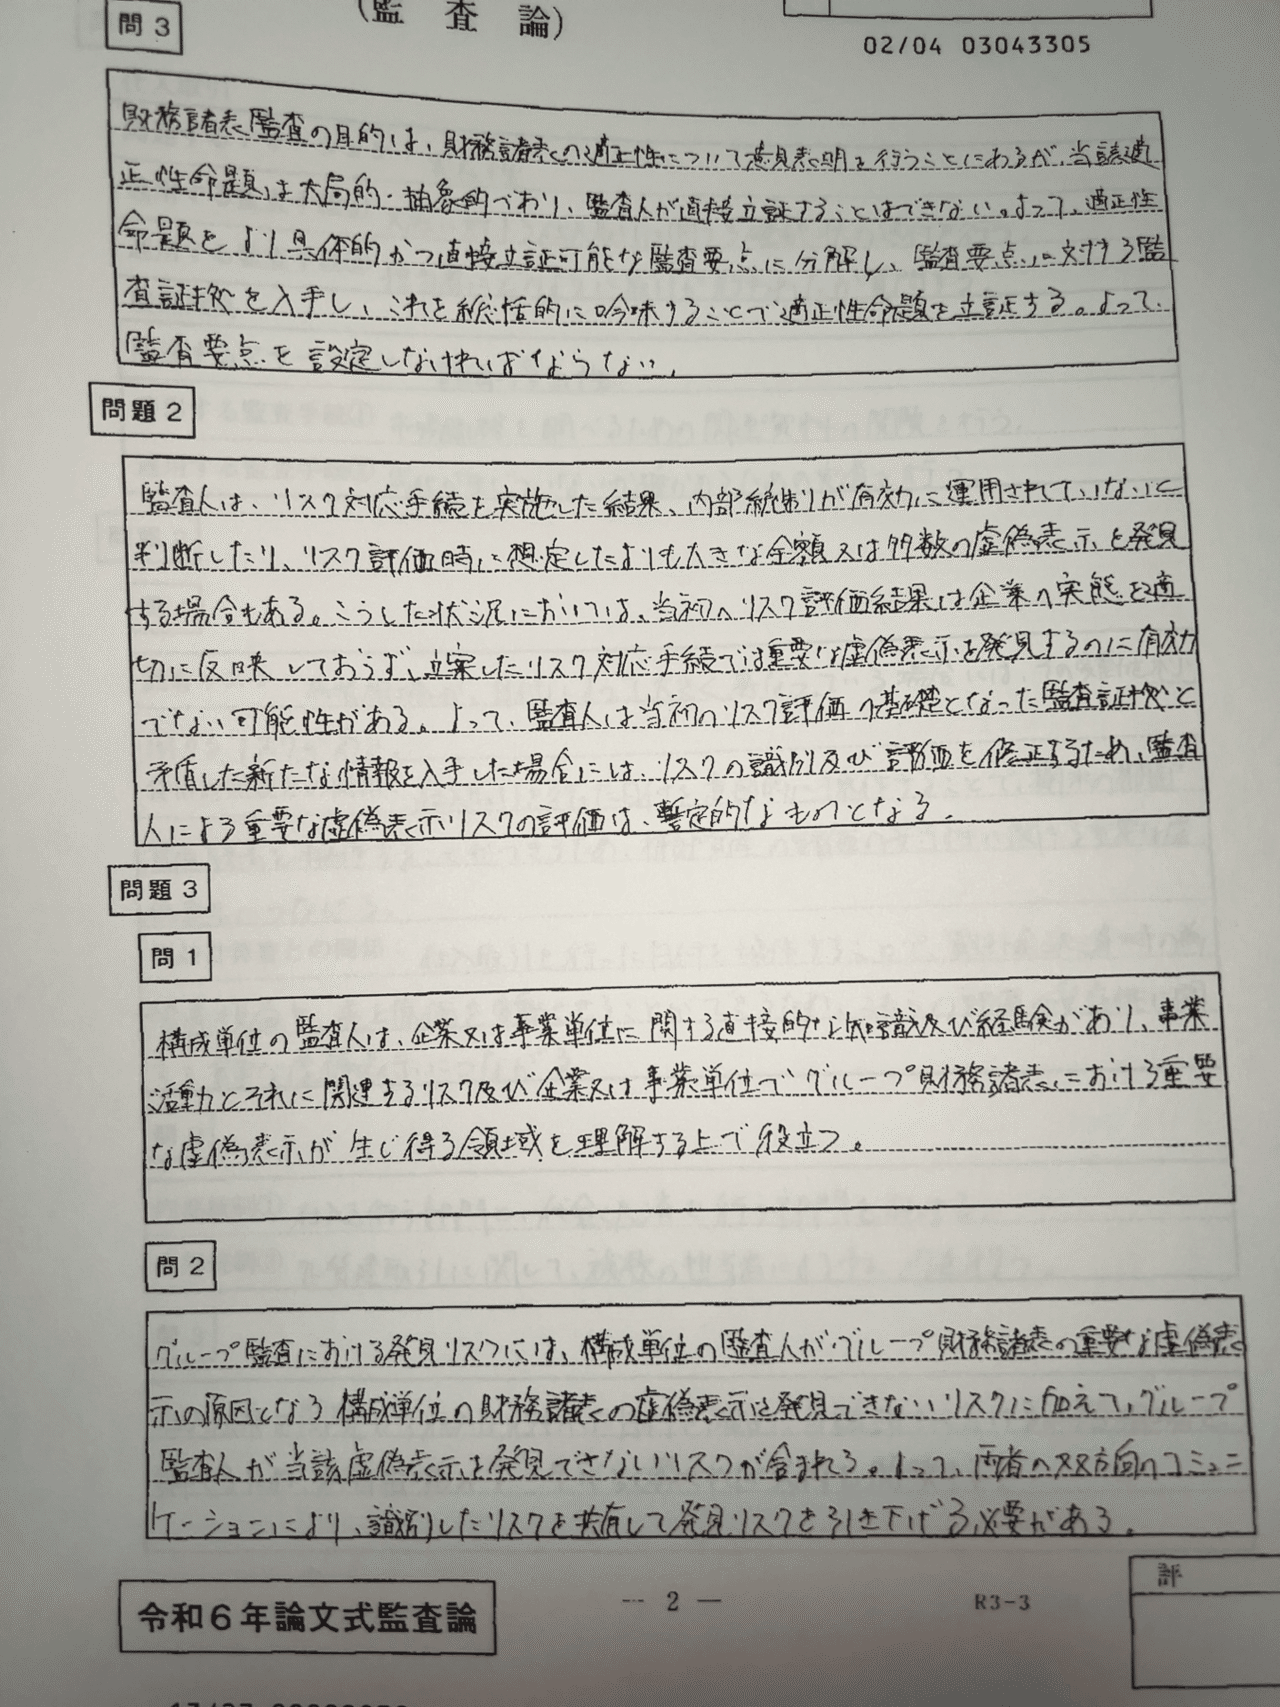 問3
(監査論)
02/04 03043305
財務諸表監査の目的は、財務諸表の適正性について意見表明を行うことにあるが、当該適
正性命題は大局的・抽象的であり、監査人が直接立証することはできない。よって、適正性
命題をより具体的かつ直接立証可能な監査要点に分解し、監査要点に対する監
査証拠を入手し、これを総括的に吟味することで適正性命題を立証する。よって、
監査要点を設定しなければならない。
問題2
監査人は、リスク対応手続を実施した結果、内部統制が有効に運用されていないと
判断したり、リスク評価時に想定したよりも大きな金額又は多数の虚偽表示を発見
する場合もある。こうした状況においては、当初のリスク評価結果は企業の実態を適
切に反映しておらず、立案したリスク対応手続では重要な虚偽表示を発見するのに有効
でない可能性がある。よって、監査人は当初のリスク評価の基礎となった監査証拠と
矛盾した新たな情報を入手した場合には、リスクの識別及び評価を修正するため、監査
人による重要な虚偽表示リスクの評価は、暫定的なものとなる。
問題3
問1
構成単位の監査人は、企業又は事業単位に関する直接的な知識及び経験があり、事業
活動とそれに関連するリスク及び企業又は事業単位でグループ財務諸表における重要
な虚偽表示が生じ得る領域を理解する上で役立つ。
問2
グループ監査における発見リスクには、構成単位の監査人が、グループ財務諸表の重要な虚偽表
示の原因となる構成単位の財務諸表の虚偽表示を発見できないリスクに加えて、グループ
監査人が当該虚偽表示を発見できないリスクが含まれる。よって、両者の双方向のコミュニ
ケーションにより、識別したリスクを共有して発見リスクを引き下げる必要がある。
令和6年論文式監査論
— 2 —
R3-3
評